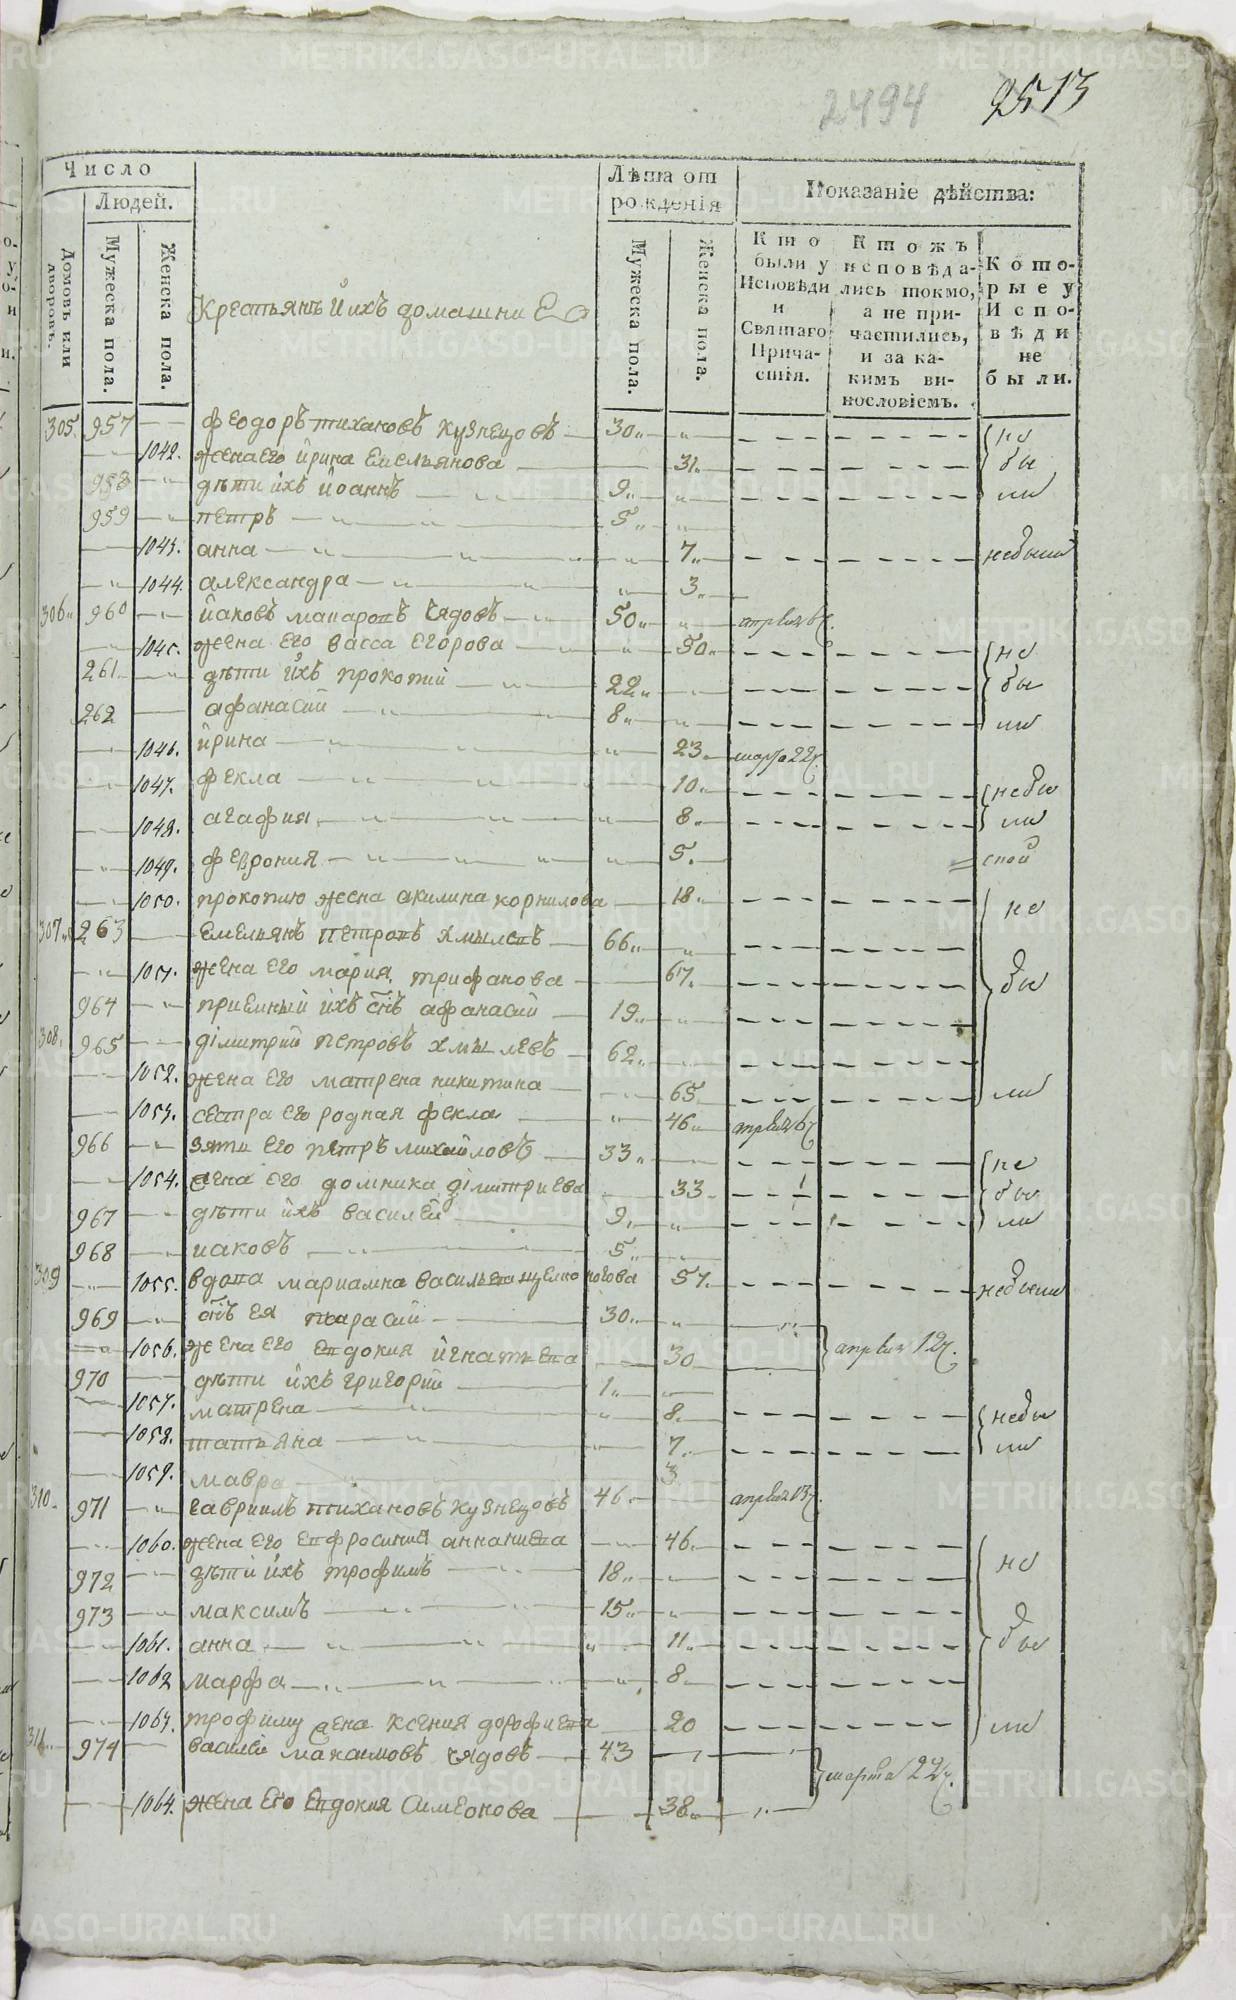 2494 2513
Число
Людей.
Домовъ или дворовъ.
Мужеска пола.
Женска пола.
Крестьянѣ и ихъ домашни Е
Лѣта от рожденія
Мужеска пола.
Женска пола.
Показаніе дѣйства:
Кто были у Исповѣди и Святаго Прича-стія.
Ктожъ исповѣда-лись токмо, а не при-частились, и за ка-кимъ ви-нословіемъ.
Кото-рые у Испо-вѣди не были.
305. 957 феодоръ тихановъ кузнецовъ 30 не
1042. жена его ирина емельянова 31. бы
958 дѣти ихъ иоаннъ 9 ли
959 петръ 5
1043. анна 7 небыли
1044. александра 3
306 960 иаковъ макаровъ чядовъ 50 апреля 6
1045. жена его васса егорова 50 не
261 дѣти ихъ прокопий 22 бы
262 афанасий 8 ли
1046. ирина 23 марта 22
1047. фекла 10 небы
1048. агафия 8 ли
1049. феврония 5.
1050. прокопию жена акилина корнилова 18 не
307 263 емельянъ петровъ хмылевъ 66
1051. жена его мария трифанова 67. бы
964 приемный ихъ снъ афанасий 19
308. 965 димитрий петровъ хмылевъ 62
1052. жена его матрена никитина 65 ли
1053. сестра его родная фекла 46 апреля 6
966 зять его петръ михайловъ 33 не
1054. жена его домника димитриева 33 бы
967 дѣти ихъ василей 9 ли
968 иаковъ 5
309 1055. вдова мариамна васильева 57. небыли
969 снъ ея тарасий 30
1056. жена его евдокия игнатьева 30 апреля 12
970 дѣти ихъ григорий 1
1057. матрена 8 небы
1058. татьяна 7 ли
1059. мавра 3
310 971 гавриилъ тихановъ кузнецовъ 46 апреля 13
1060. жена его евфросиния ананиева 46
972 дѣти ихъ трофимъ 18 не
973 максимъ 15
1061. анна 11 бы
1062 марфа 8
1063. трофиму жена ксения дорофиева 20 ли
311 974 василей максимовъ чядовъ 43
марта 22
1064. жена его евдокия симеонова 38
METRIKI.GASO-URAL.RU